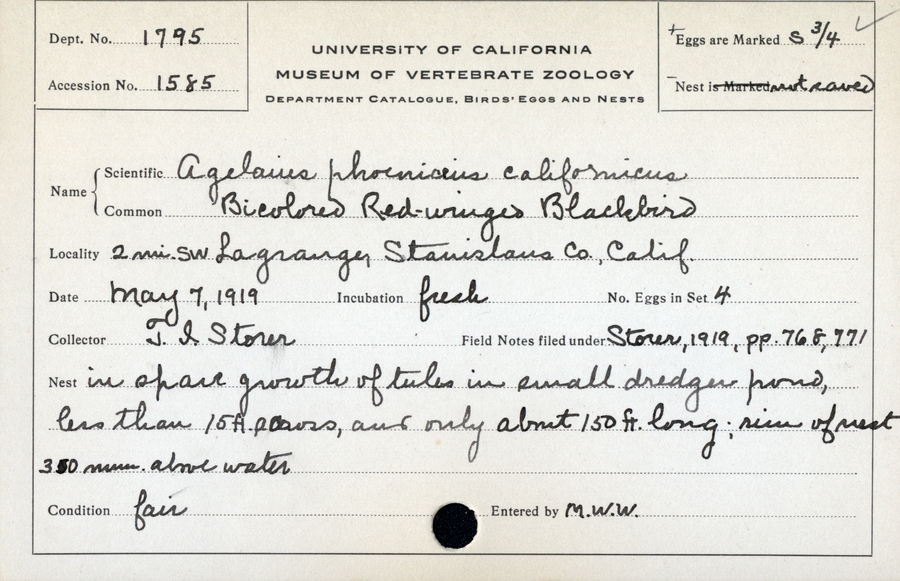 Dept. No. 1795
Accession No. 1585
UNIVERSITY OF CALIFORNIA
MUSEUM OF VERTEBRATE ZOOLOGY
DEPARTMENT CATALOGUE, BIRDS' EGGS AND NESTS
+Eggs are Marked S 3/4 ✓
–Nest is Marked not saved
Name { Scientific Agelaius phoeniceus californicus
Common Bicolored Red-winged Blackbird
Locality 2 mi. SW Lagrange, Stanislaus Co., Calif.
Date May 7, 1919 Incubation fresh No. Eggs in Set 4
Collector T. I. Storer Field Notes filed under Storer, 1919, pp. 768, 771
Nest in sparse growth of tules in small dredger pond,
less than 15 ft. across, and only about 150 ft. long; rim of nest
350 mm. above water
Condition fair Entered by M.W.W.